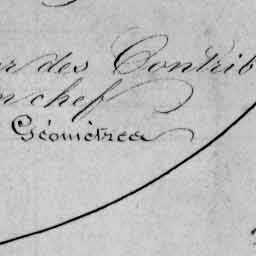 r des Contrib
n chef
Géomètres